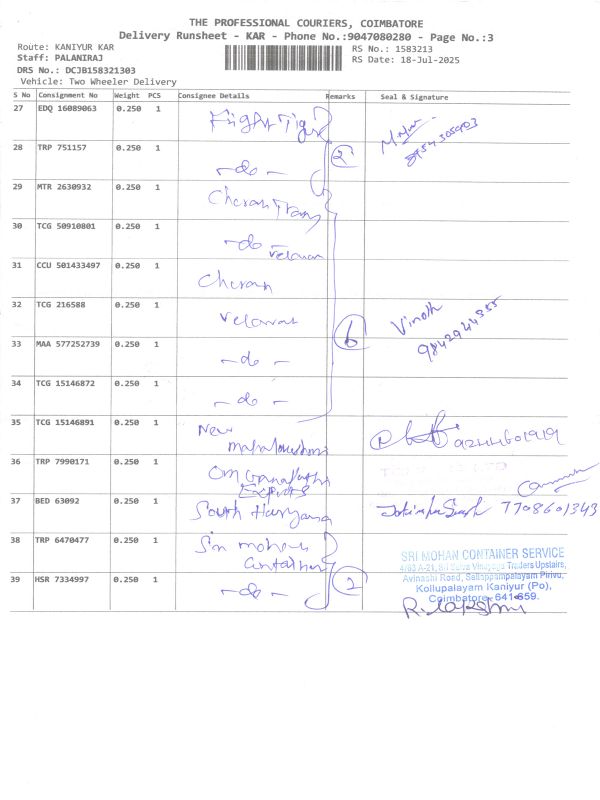 THE PROFESSIONAL COURIERS, COIMBATORE
Delivery Runsheet - KAR - Phone No.:9047080280 - Page No.:3
Route: KANIYUR KAR
RS No.: 1583213
Staff: PALANIRAJ
RS Date: 18-Jul-2025
DRS No.: DCJB158321303
Vehicle: Two Wheeler Delivery
S No Consignment No Weight PCS Consignee Details Remarks Seal & Signature
27 EDQ 16089063 0.250 1 Fight Tiger
28 TRP 751157 0.250 1 -do- 2
29 MTR 2630932 0.250 1 Cheran Trans
30 TCG 50910801 0.250 1 -do Velavan
31 CCU 501433497 0.250 1 Cheran
32 TCG 216588 0.250 1 Velavan 6 Vinoth 9842944355
33 MAA 577252739 0.250 1 -do-
34 TCG 15146872 0.250 1 -do-
35 TCG 15146891 0.250 1 New
36 TRP 7990171 0.250 1 Om Ganapathi
Exports
37 BED 63092 0.250 1 South Haryana 7708601343
38 TRP 6470477 0.250 1 Sri mohan
Container
39 HSR 7334997 0.250 1 -do- 2
SRI MOHAN CONTAINER SERVICE
Traders Upstairs,
Avinashi Road, Pirivu,
Kollupalayam Kaniyur (Po),
Coimbatore - 641 659.